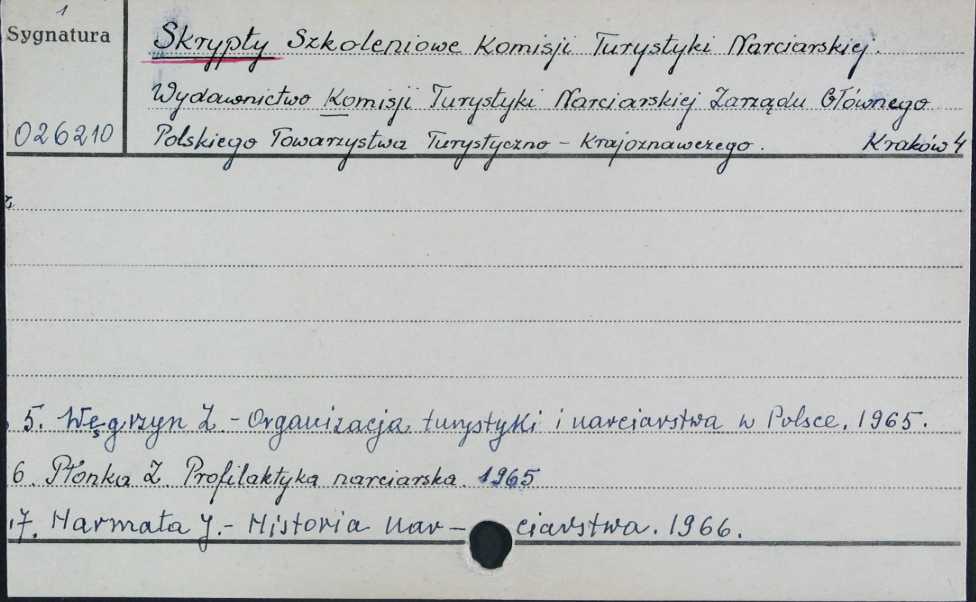 1
Sygnatura
Skrypty Szkoleniowe Komisji Turystyki Narciarskiej.
Wydawnictwo Komisji Turystyki Narciarskiej Zarządu Głównego
026210
Polskiego Towarzystwa Turystyczno - Krajoznawczego. Kraków 4
5. Węgrzyn Z. - Organizacja turystyki i narciarstwa w Polsce. 1965.
6. Płonka Z. Profilaktyka narciarska. 1965
7. Harmata J. - Historia nar- ciarstwa. 1966.